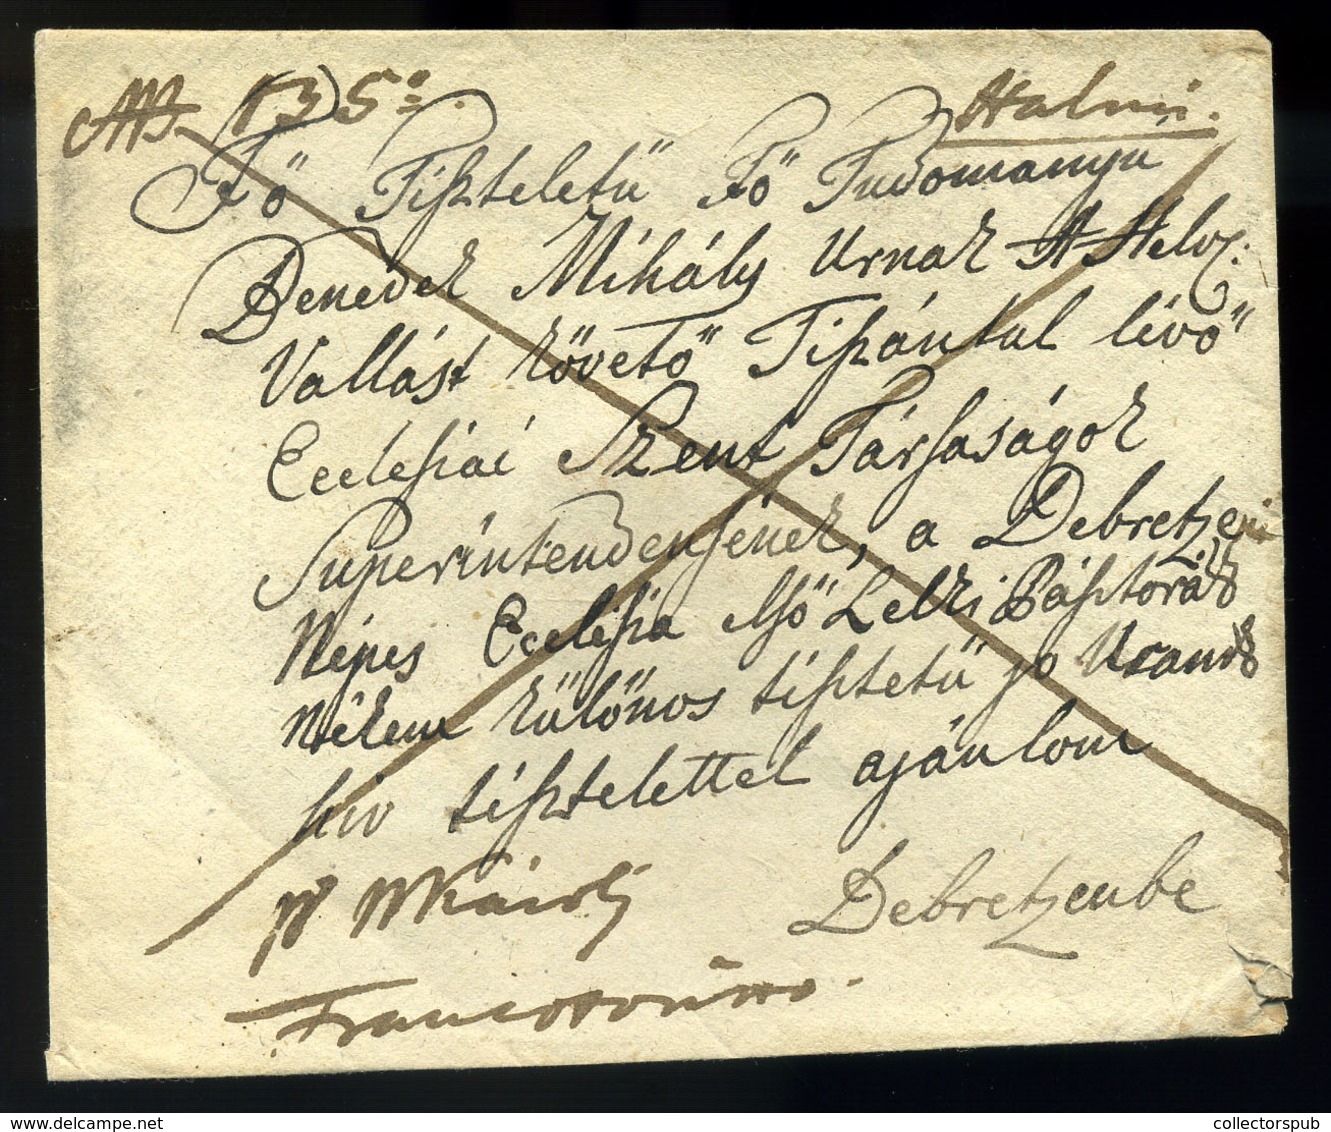 NB 135.
Halmi.
Fő Tisztéletű Fő Tudományú
Benedek Mihály Urnak A Helv.
Vallást követő Tiszántúl lévő
Ecclesiai Szent Társaságok
Superintendensének, a Debretzeni
Népes Ecclesia első Lelki Pásztorának
Nékem különös tisztetű jó Uramnak
hiv tisztelettel ajánlom
Debretzenbe
p N Károly
Franco
collectorspub.com